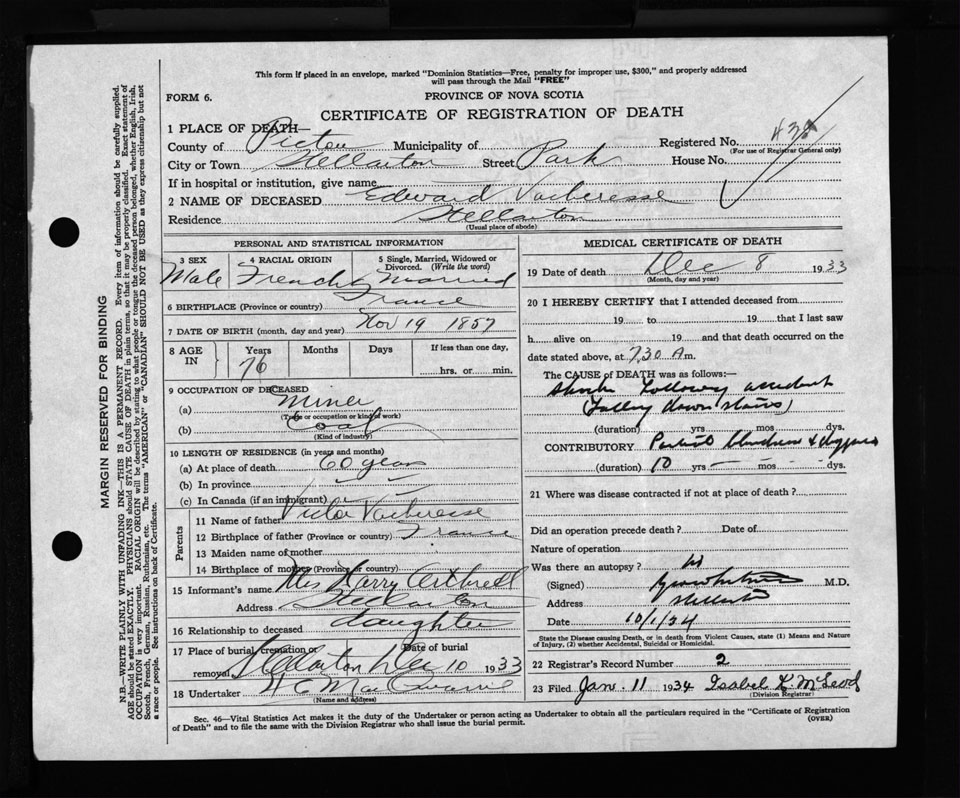 This form if placed in an envelope, marked "Dominion Statistics—Free, penalty for improper use, $300," and properly addressed
will pass through the Mail "FREE"
FORM 6.
PROVINCE OF NOVA SCOTIA
CERTIFICATE OF REGISTRATION OF DEATH
1 PLACE OF DEATH—
County of Pictou Municipality of Registered No.
(For use of Registrar General only)
City or Town Stellarton Street Park House No.
If in hospital or institution, give name
2 NAME OF DECEASED Edward
Residence Stellarton
(Usual place of abode)
PERSONAL AND STATISTICAL INFORMATION
3 SEX 4 RACIAL ORIGIN 5 Single, Married, Widowed or Divorced. (Write the word)
Male French Married
6 BIRTHPLACE (Province or country) France
7 DATE OF BIRTH (month, day and year) Nov 19 1857
8 AGE IN Years Months Days If less than one day,
76 hrs. or min.
9 OCCUPATION OF DECEASED
(a) Miner
(Trade or occupation or kind of work)
(b) Coal
(Kind of industry)
10 LENGTH OF RESIDENCE (in years and months)
(a) At place of death 60 years
(b) In province
(c) In Canada (if an immigrant)
Parents
11 Name of father Victor
12 Birthplace of father (Province or country) France
13 Maiden name of mother
14 Birthplace of mother (Province or country)
15 Informant's name Mrs Harry
Address Stellarton
16 Relationship to deceased daughter
17 Place of burial, cremation or removal Date of burial
Stellarton Dec 10 1933
18 Undertaker
(Name and address)
MEDICAL CERTIFICATE OF DEATH
19 Date of death Dec 8 1933
(Month, day and year)
20 I HEREBY CERTIFY that I attended deceased from
19 to 19 that I last saw
h alive on 19 and that death occurred on the
date stated above, at 7.30 A m.
The CAUSE of DEATH was as follows:—
Shock following accident
(Falling down stairs)
(duration) yrs mos dys.
CONTRIBUTORY Partial blindness &
(duration) 10 yrs — mos — dys.
21 Where was disease contracted if not at place of death?
Did an operation precede death? Date of
Nature of operation
Was there an autopsy?
(Signed) M.D.
Address Stellarton
Date 10/1/34
State the Disease causing Death, or in death from Violent Causes, state (1) Means and Nature
of Injury, (2) whether Accidental, Suicidal or Homicidal.
22 Registrar's Record Number 2
23 Filed Jan. 11 1934 Isabel K. McLeod
(Division Registrar)
Sec. 46—Vital Statistics Act makes it the duty of the Undertaker or person acting as Undertaker to obtain all the particulars required in the "Certificate of Registration
of Death" and to file the same with the Division Registrar who shall issue the burial permit.
(OVER)
MARGIN RESERVED FOR BINDING
N.B.—WRITE PLAINLY WITH UNFADING INK—THIS IS A PERMANENT RECORD. Every item of information should be carefully supplied.
AGE should be stated EXACTLY. PHYSICIANS should STATE CAUSE OF DEATH in plain terms, so that it may be properly classified. Exact statement of
OCCUPATION is very important. RACIAL ORIGIN will be described by stating to what people or tongue the deceased person belonged, whether English, Irish,
Scotch, French, German, Russian, Ruthenian, etc. The terms "AMERICAN" or "CANADIAN" SHOULD NOT BE USED as they express citizenship but not
a race or people. See instructions on back of Certificate.